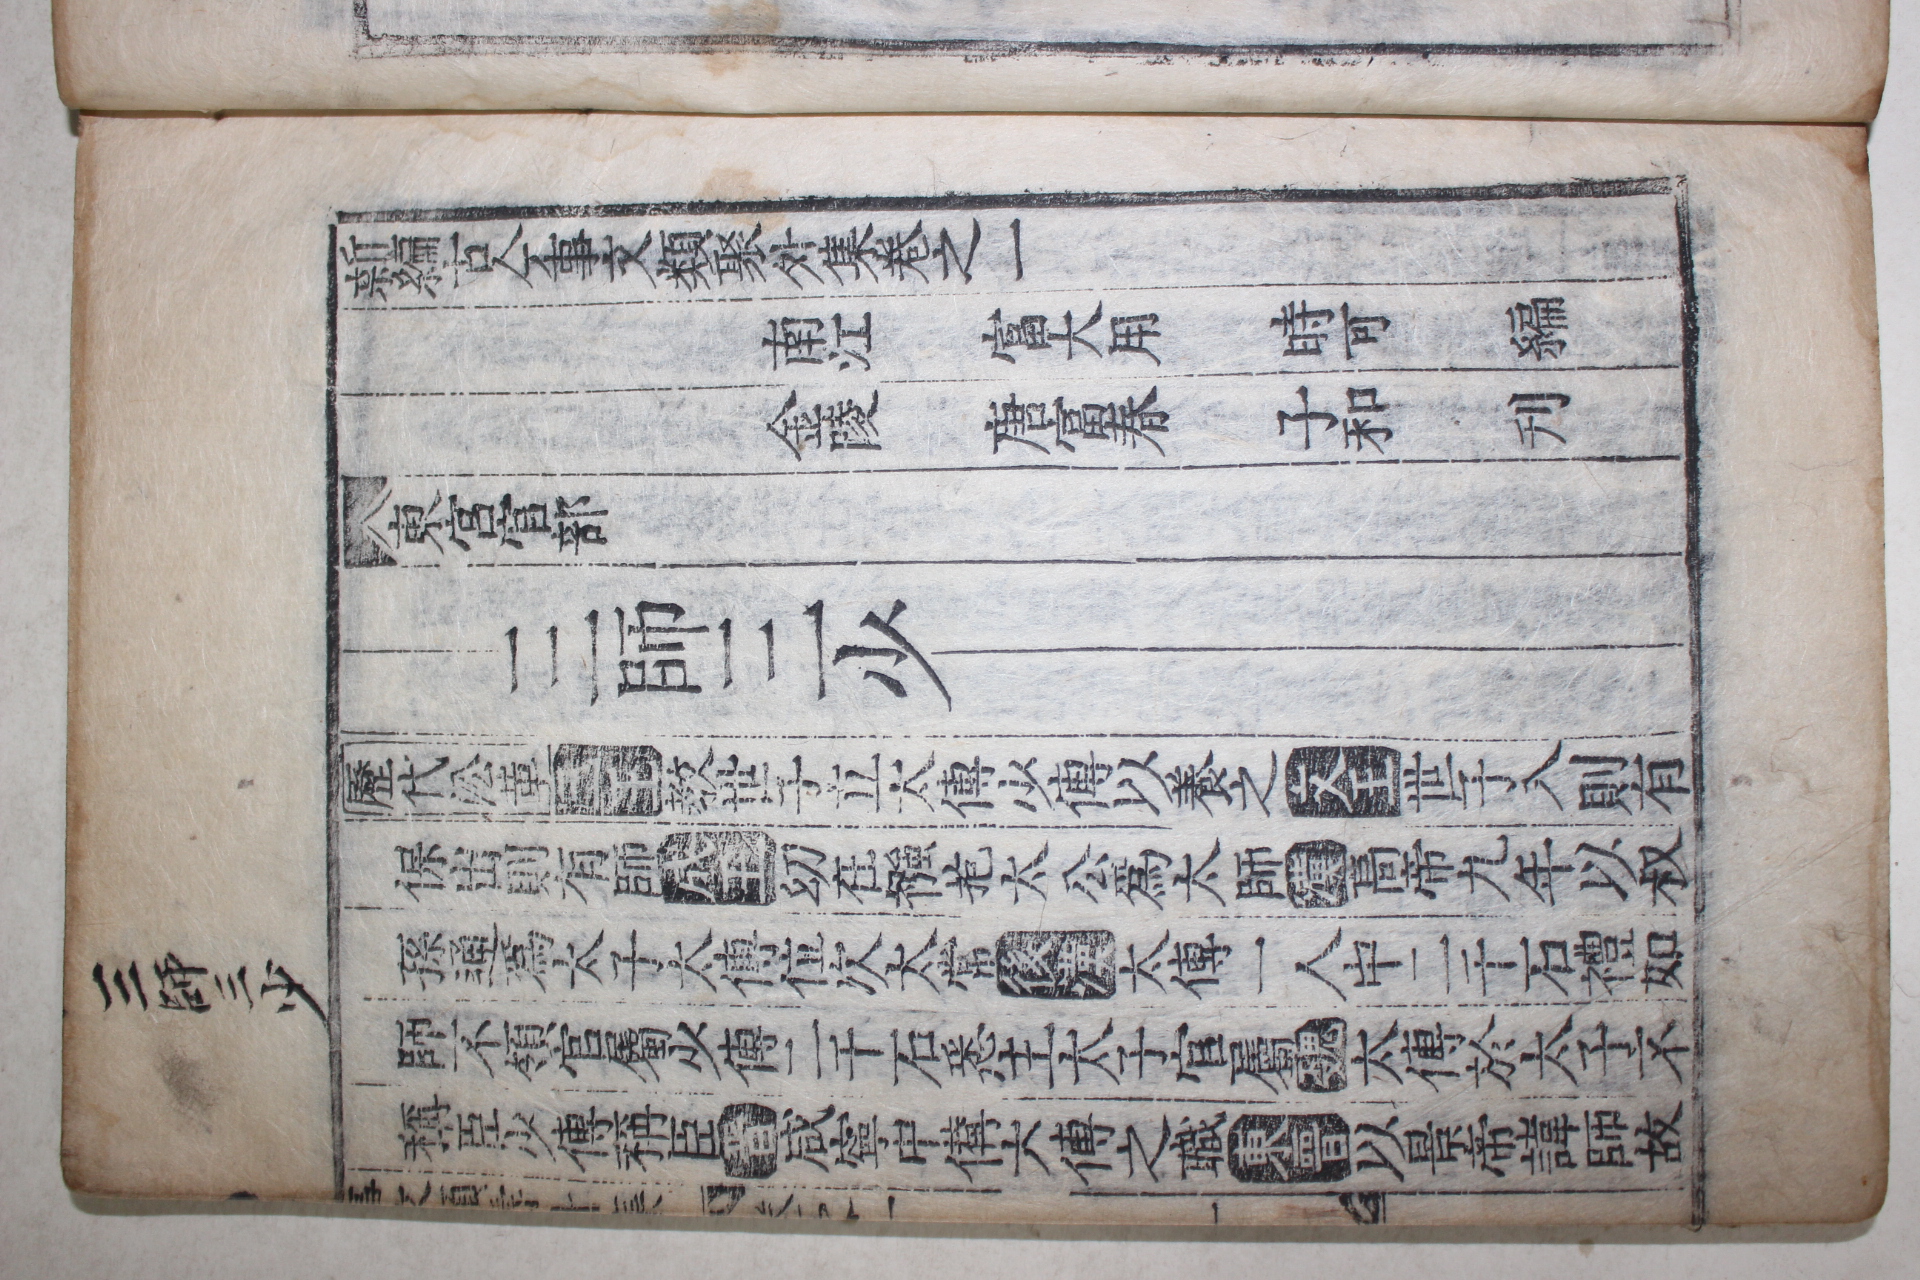 三師三少
新編古今事文類聚外集卷之一
南江 富大用 時可 編
金陵 唐富春 子和 刊
東宮官部
三師三少
歷代沿革三王教世子立太傅少傅以養之文王世子入則有
保出則有師成王幼在襁褓太公爲太師漢高帝九年以叔
孫通爲太子太傅位次太常後漢太傅一人中二千石禮如
師不領官屬少傅二千石悉主太子官屬魏太傅於太子不
稱臣少傅稱臣晉咸寧中備六傅之職東晉以景帝諱師故